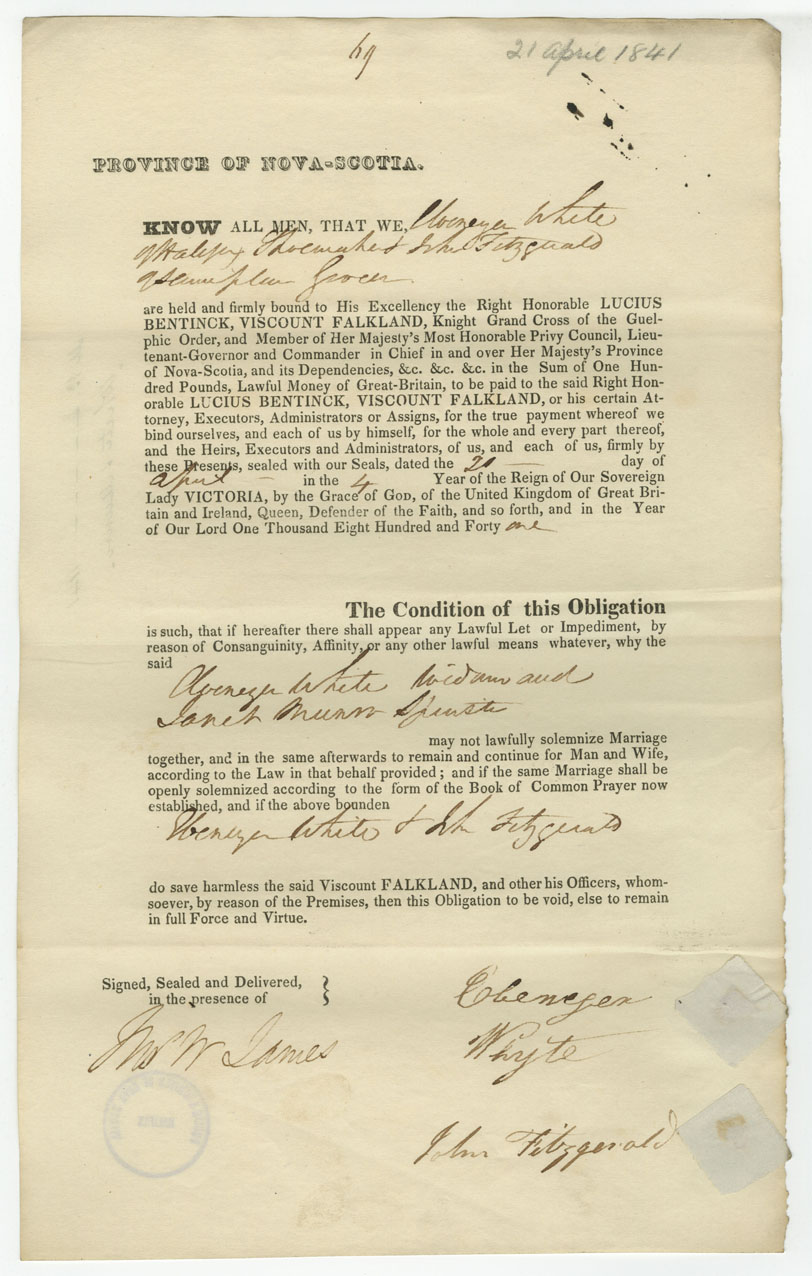 69
21 April 1841
PROVINCE OF NOVA-SCOTIA.
KNOW ALL MEN, THAT WE, Ebenezer White
of Halifax Shoemaker & John Fitzgerald
of same place Grocer
are held and firmly bound to His Excellency the Right Honorable LUCIUS
BENTINCK, VISCOUNT FALKLAND, Knight Grand Cross of the Guel-
phic Order, and Member of Her Majesty's Most Honorable Privy Council, Lieu-
tenant-Governor and Commander in Chief in and over Her Majesty's Province
of Nova-Scotia, and its Dependencies, &c. &c. &c. in the Sum of One Hun-
dred Pounds, Lawful Money of Great-Britain, to be paid to the said Right Hon-
orable LUCIUS BENTINCK, VISCOUNT FALKLAND, or his certain At-
torney, Executors, Administrators or Assigns, for the true payment whereof we
bind ourselves, and each of us by himself, for the whole and every part thereof,
and the Heirs, Executors and Administrators, of us, and each of us, firmly by
these Presents, sealed with our Seals, dated the 21 day of
April in the 4 Year of the Reign of Our Sovereign
Lady VICTORIA, by the Grace of God, of the United Kingdom of Great Bri-
tain and Ireland, Queen, Defender of the Faith, and so forth, and in the Year
of Our Lord One Thousand Eight Hundred and Forty one
The Condition of this Obligation
is such, that if hereafter there shall appear any Lawful Let or Impediment, by
reason of Consanguinity, Affinity, or any other lawful means whatever, why the
said
Ebenezer White Widower and
Janet Munro Spinster
may not lawfully solemnize Marriage
together, and in the same afterwards to remain and continue for Man and Wife,
according to the Law in that behalf provided; and if the same Marriage shall be
openly solemnized according to the form of the Book of Common Prayer now
established, and if the above bounden
Ebenezer White & John Fitzgerald
do save harmless the said Viscount FALKLAND, and other his Officers, whom-
soever, by reason of the Premises, then this Obligation to be void, else to remain
in full Force and Virtue.
Signed, Sealed and Delivered,
in the presence of
Ebenezer
Whyte
Thos W James
John Fitzgerald